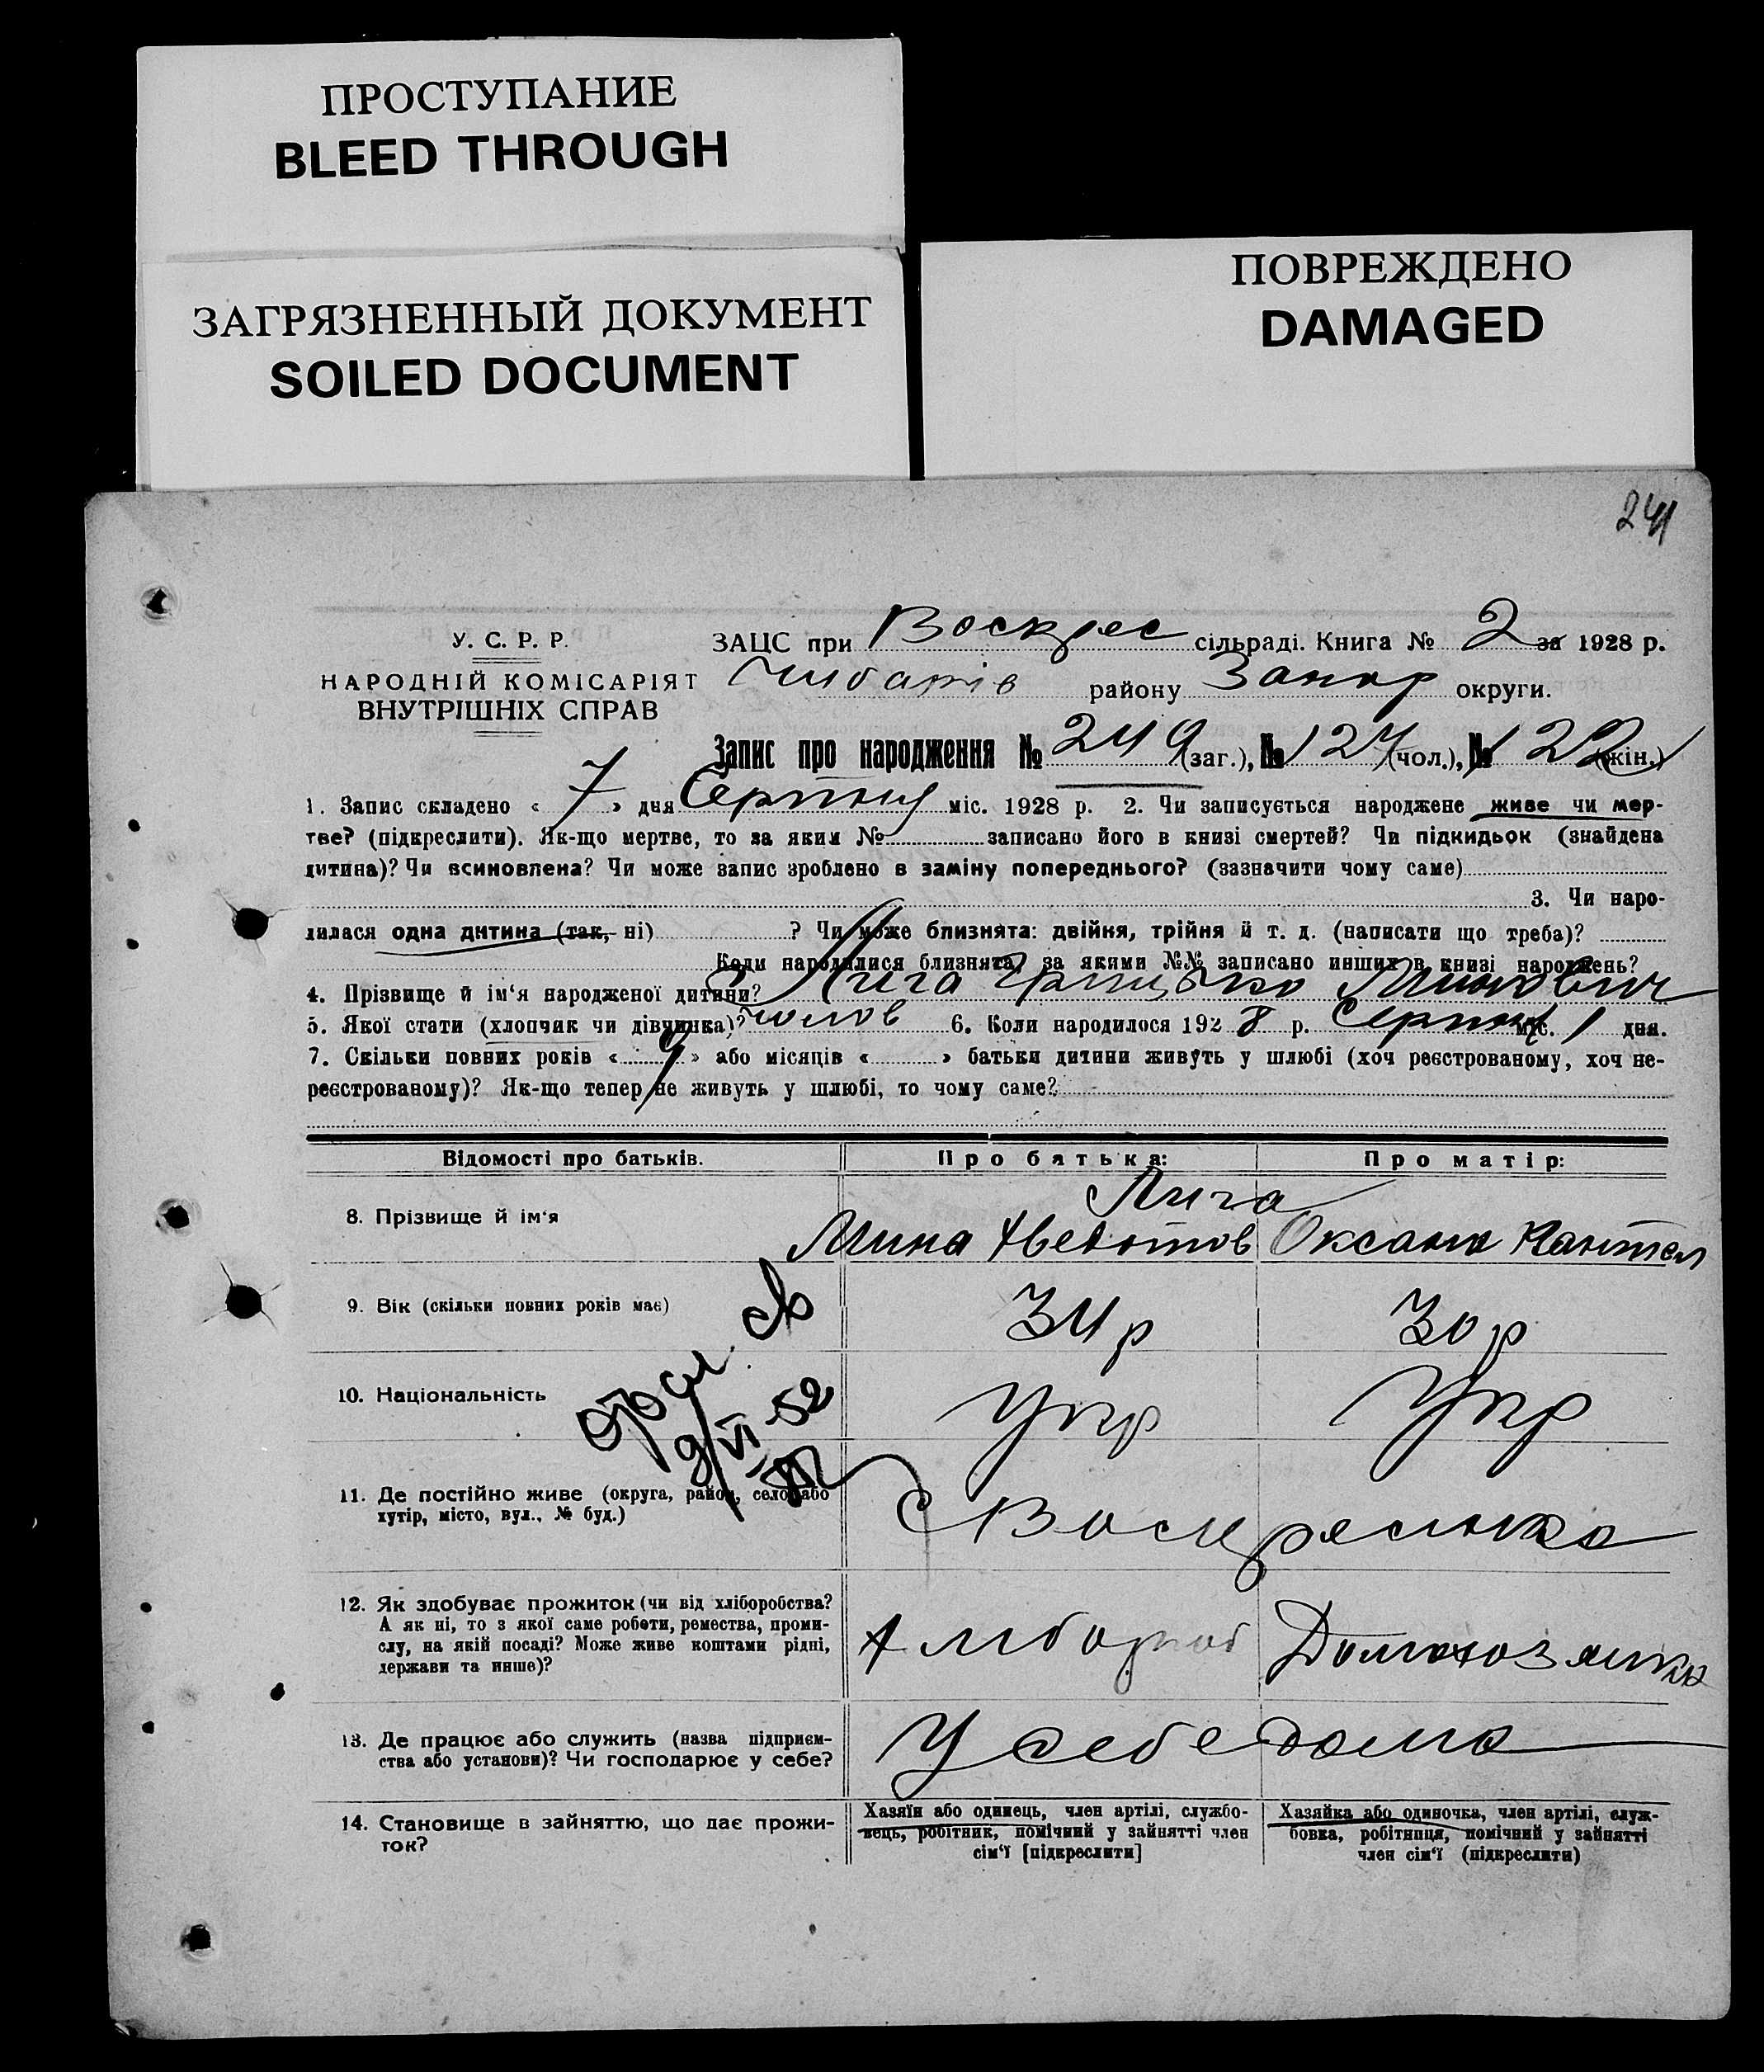 ПРОСТУПАНИЕ
BLEED THROUGH
ЗАГРЯЗНЕННЫЙ ДОКУМЕНТ
SOILED DOCUMENT
ПОВРЕЖДЕНО
DAMAGED
241
У. С. Р. Р.
НАРОДНІЙ КОМІСАРІЯТ
ВНУТРІШНІХ СПРАВ
ЗАЦС при Воскрес сільраді. Книга № 2 за 1928 р.
району Запор округи.
Запис про народження № 249 (заг.), № 127 (чол.), № 122 (жін.)
1. Запис складено « 7 » дня Серпня міс. 1928 р. 2. Чи записується народжене живе чи мер-
тве? (підкреслити). Як-що мертве, то за яким № записано його в книзі смертей? Чи підкидьок (знайдена
дитина)? Чи всиновлена? Чи може запис зроблено в заміну попереднього? (зазначити чому саме)
3. Чи наро-
дилася одна дитина (так, ні) ? Чи може близнята: двійня, трійня й т. д. (написати що треба)?
Коли народилися близнята, за якими №№ записано инших в книзі народжень?
4. Прізвище й ім‘я народженої дитини? Лига Грицько Минович
5. Якої стати (хлопчик чи дівчинка)? чолов 6. Коли народилося 1928 р. Серпня міс. 1 дня.
7. Скільки повних років « 9 » або місяців « » батьки дитини живуть у шлюбі (хоч реєстрованому, хоч не-
реєстрованому)? Як-що тепер не живуть у шлюбі, то чому саме?
Відомості про батьків. Про батька: Про матір:
8. Прізвище й ім‘я
Лига
Мина Хведотов Оксана Пантел
9. Вік (скільки повних років має) 34 р 30 р
10. Національність Укр Укр
9/VI-52
11. Де постійно живе (округа, район, село або
хутір, місто, вул., № буд.)
с Воскресенка
12. Як здобуває прожиток (чи від хліборобства?
А як ні, то з якої саме роботи, ремества, проми-
слу, на якій посаді? Може живе коштами рідні,
держави та инше)?
Хлібороб Домохозяйка
13. Де працює або служить (назва підприєм-
ства або установи)? Чи господарює у себе?
У себе дома
14. Становище в зайняттю, що дає прожи-
ток?
Хазяїн або одинець, член артілі, службо-
вець, робітник, помічний у зайнятті член
сім‘ї [підкреслити]
Хазяйка або одиночка, член артілі, служ-
бовка, робітниця, помічний у зайнятті
член сім‘ї (підкреслити)